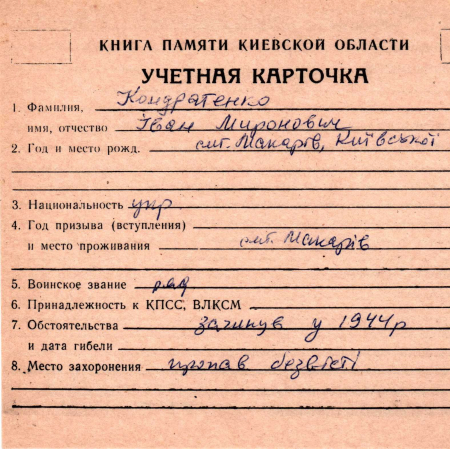 КНИГА ПАМЯТИ КИЕВСКОЙ ОБЛАСТИ
УЧЕТНАЯ КАРТОЧКА
1. Фамилия, Кондратенко
имя, отчество Іван Миронович
2. Год и место рожд. смт. Макарів, Київської
3. Национальность укр
4. Год призыва (вступления)
и место проживания смт. Макарів
5. Воинское звание ряд
6. Принадлежность к КПСС, ВЛКСМ
7. Обстоятельства загинув у 1944р
и дата гибели
8. Место захоронения пропав безвісті